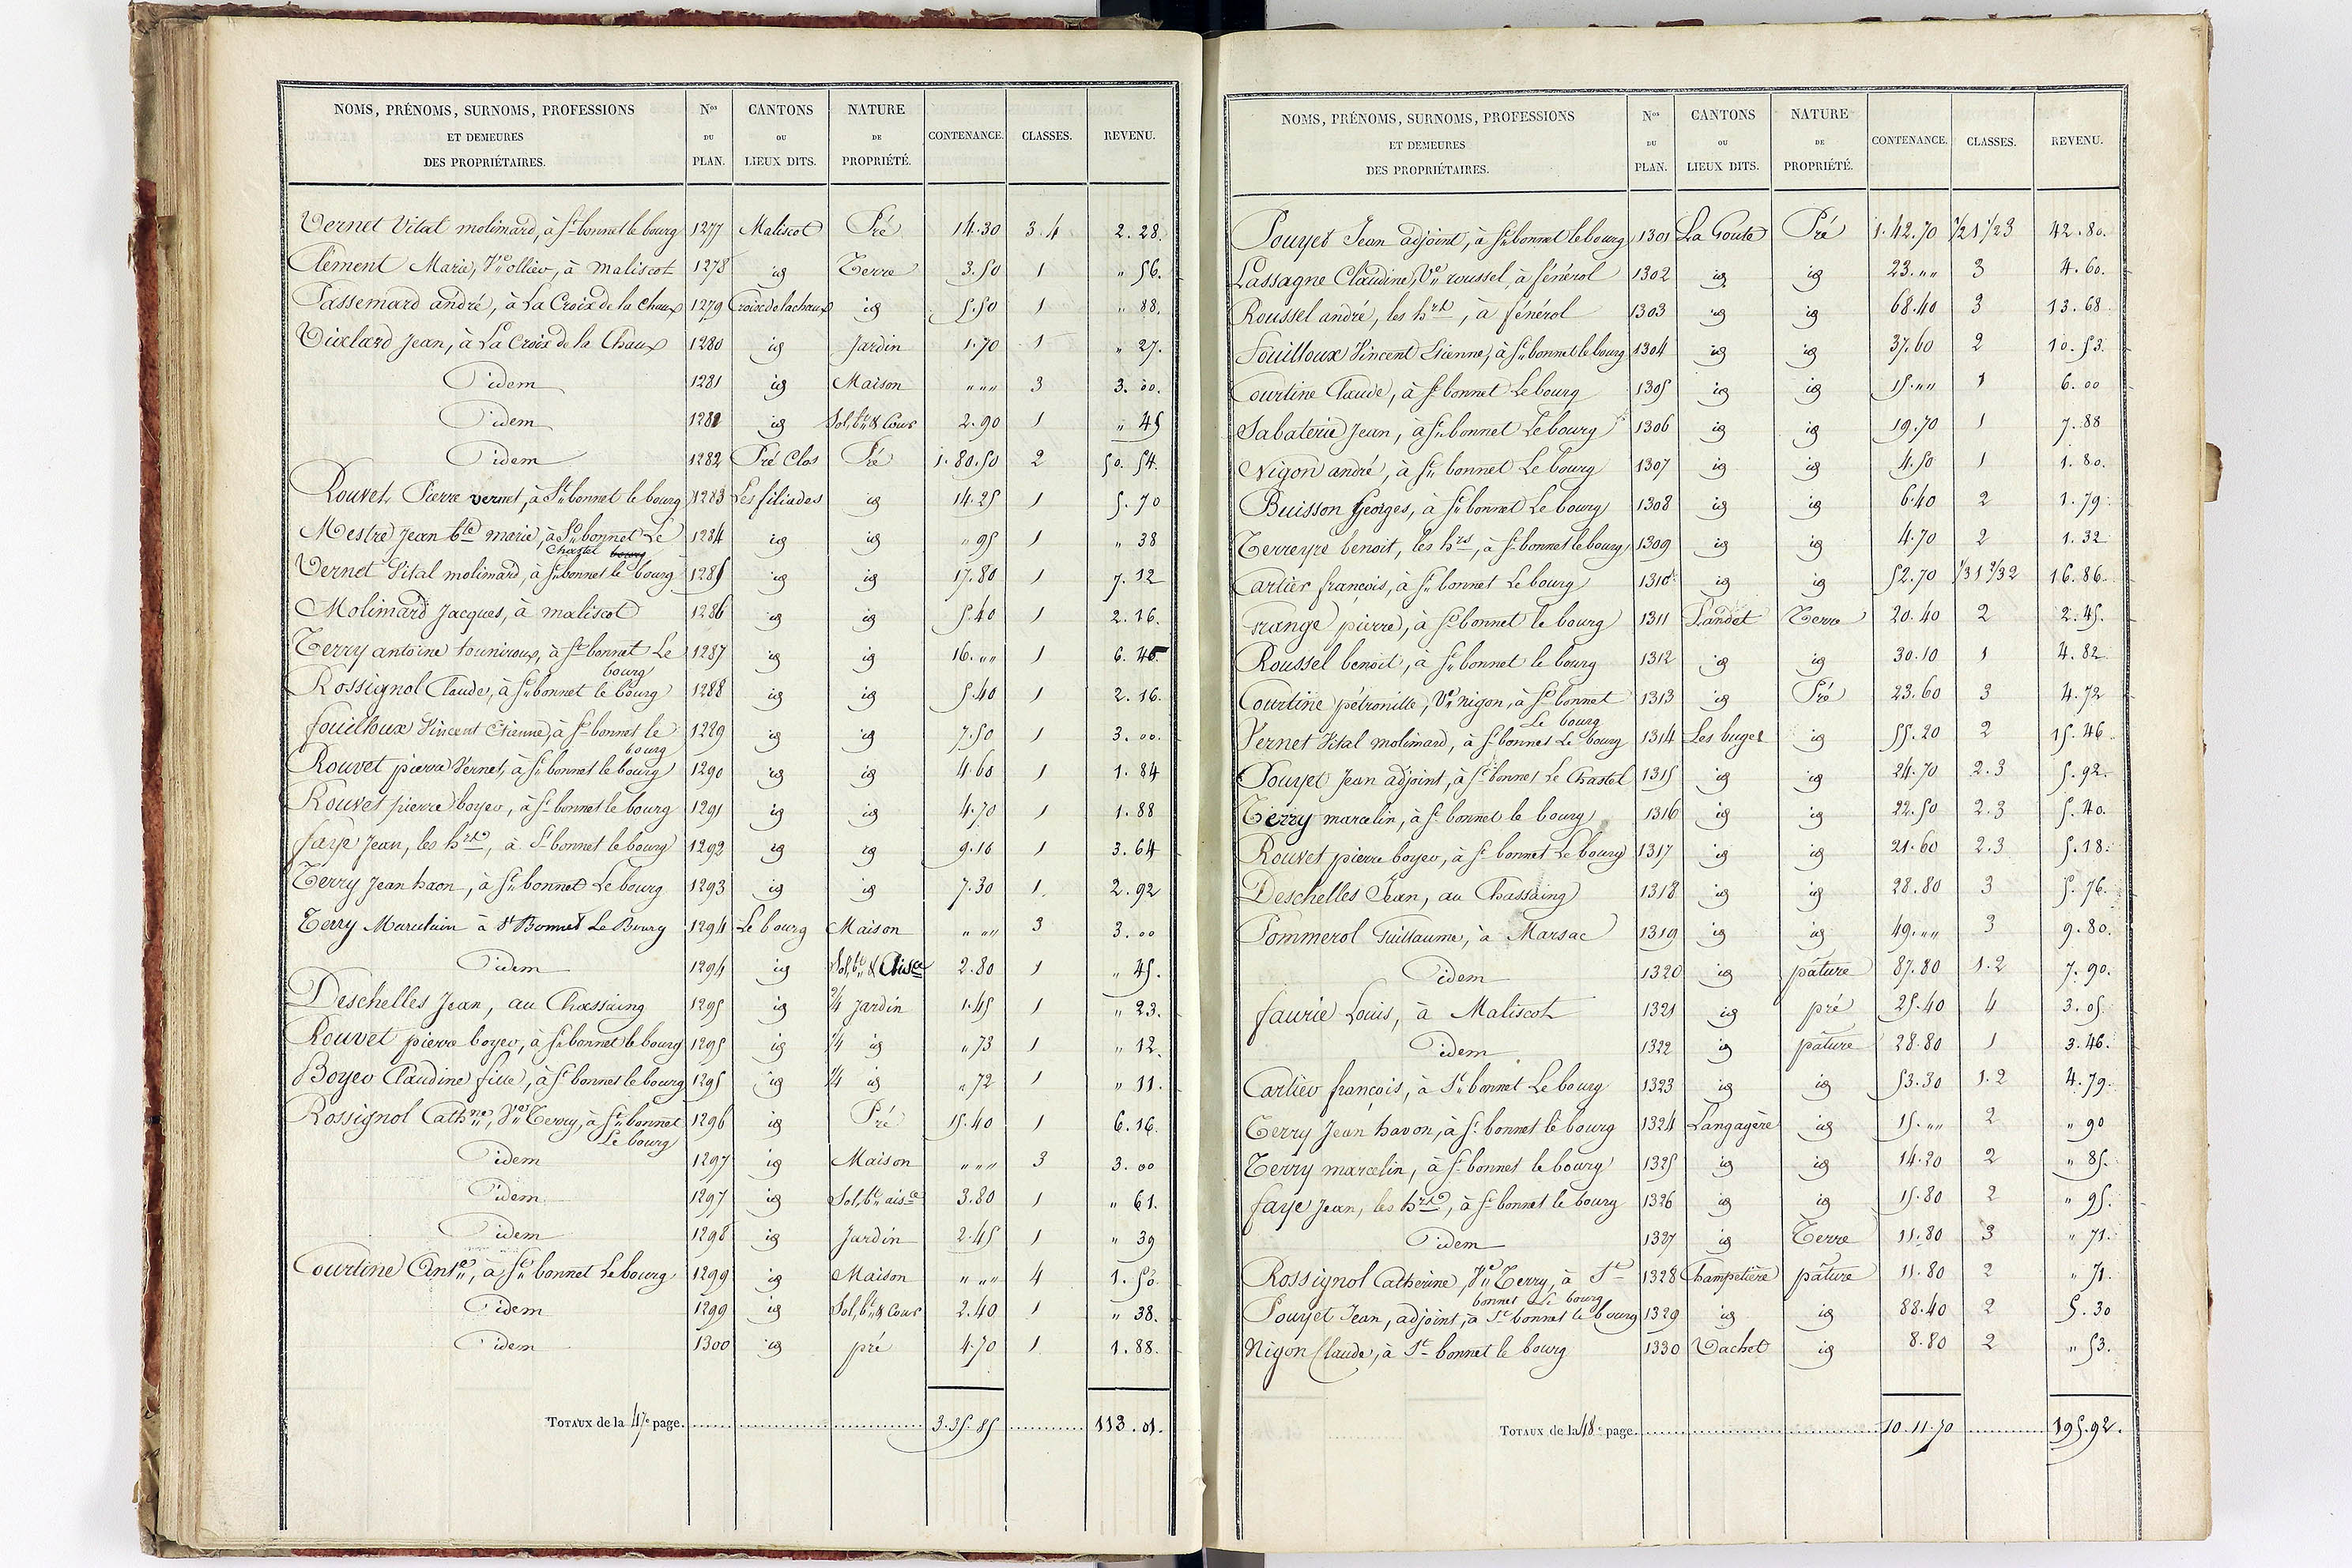 NOMS, PRÉNOMS, SURNOMS, PROFESSIONS ET DEMEURES DES PROPRIÉTAIRES. Nos DU PLAN. CANTONS OU LIEUX DITS. NATURE DE PROPRIÉTÉ. CONTENANCE. CLASSES. REVENU.
Vernet Vital molimard, à St bonnet le bourg 1277 Maliscot Pré 14.30 3.4 2.28.
Clément Marie, Ve ollier, à maliscot 1278 id Terre 3.50 1 " 56.
Passemard andré, à La Croix de la Chaux 1279 Croix de la chaux id 5.50 1 " 88.
Vialard Jean, à La Croix de la Chaux 1280 id Jardin 1.70 1 " 27.
idem 1281 id Maison " " " 3 3.00.
idem 1281 id Sol, bt & Cour 2.90 1 " 45
idem 1282 Pré Clos Pré 1.80.50 2 50.54.
Rouvet Pierre vernet, à St bonnet le bourg 1283 Les filiades id 14.25 1 5.70
Mestre Jean bte marie, à St bonnet Le 1284 id id " 95 1 " 38
Chastel bourg
Vernet Vital molimard, à St bonnet le bourg 1285 id id 17.80 1 7.12
Molimard Jacques, à maliscot 1286 id id 5.40 1 2.16.
Terry antoine touniroux, à St bonnet Le 1287 id id 16. " " 1 6.40
bourg
Rossignol Claude, à St bonnet le bourg 1288 id id 5.40 1 2.16.
fouilloux Vincent Etienne, à St bonnet le 1289 id id 7.50 1 3.00.
bourg
Rouvet pierre Vernet, à St bonnet le bourg 1290 id id 4.60 1 1.84
Rouvet pierre boyer, à St bonnet le bourg 1291 id id 4.70 1 1.88
faye Jean, les hrs, à St bonnet le bourg 1292 id id 9.10 1 3.64
Terry Jean haon, à St bonnet Le bourg 1293 id id 7.30 1. 2.92
Terry Marcelain à St Bonnet Le Bourg 1294 Le bourg Maison " " " 3 3.00
idem 1294 id Sol, bt & Aisce 2.80 1 " 45.
Deschelles Jean, au Chassaing 1295 id 2/4 Jardin 1.45 1 " 23.
Rouvet pierre boyer, à St bonnet le bourg 1295 id 1/4 id " 73 1 " 12.
Boyer Claudine fille, à St bonnet le bourg 1295 id 1/4 id " 72 1 " 11.
Rossignol Cathne, Ve Terry, à St bonnet 1296 id Pré 15.40 1 6.16.
Le bourg
idem 1297 id Maison " " " 3 3.00
idem 1297 id Sol, bt aisce 3.80 1 " 61.
idem 1298 id Jardin 2.45 1 " 39
Courtine Ante, à St bonnet Le bourg 1299 id Maison " " " 4 1.50.
idem 1299 id Sol, bt & Cour 2.40 1 " 38.
idem 1300 id pré 4.70 1. 1.88.
TOTAUX de la 47e page. 3.35.85 113.01.
NOMS, PRÉNOMS, SURNOMS, PROFESSIONS ET DEMEURES DES PROPRIÉTAIRES. Nos DU PLAN. CANTONS OU LIEUX DITS. NATURE DE PROPRIÉTÉ. CONTENANCE. CLASSES. REVENU.
Pouyet Jean adjoint, à St bonnet le bourg 1301 La Goute Pré 1.42.70 1/2 1 1/2 3 42.80.
Lassagne Claudine, Ve roussel, à fénérol 1302 id id 23. " " 3 4.60.
Roussel andré, les hrs, à fénérol 1303 id id 68.40 3 13.68
Fouilloux Vincent Etienne, à St bonnet le bourg 1304 id id 37.60 2 10.53.
Courtine Claude, à St bonnet Le bourg 1305 id id 15. " " 1 6.00
Sabaterie Jean, à St bonnet Le bourg 1306 id id 19.70 1 7.88
Nigon andré, à St bonnet Le bourg 1307 id id 4.50 1 1.80.
Buisson Georges, à St bonnet Le bourg 1308 id id 6.40 2 1.79.
Terreyre benoit, les hrs, à St bonnet le bourg 1309 id id 4.70 2 1.32
Cartier françois, à St bonnet Le bourg 1310 id id 52.70 1/3 1 2/3 2 16.86.
Frange pierre, à St bonnet le bourg 1311 Landet Terre 20.40 2 2.45.
Roussel benoit, à St bonnet le bourg 1312 id id 30.10 1 4.82
Courtine pétronille, Ve nigon, à St bonnet 1313 id Pré 23.60 3 4.72
Le bourg
Vernet Vital molimard, à St bonnet Le bourg 1314 Les buges id 55.20 2 15.46.
Pouyet Jean adjoint, à St bonnet Le Chastel 1315 id id 24.70 2.3 5.92.
Terry marcelin, à St bonnet le bourg 1316 id id 22.50 2.3 5.40.
Rouvet pierre boyer, à St bonnet Le bourg 1317 id id 21.60 2.3 5.18.
Deschelles Jean, au Chassaing 1318 id id 28.80 3 5.76.
Pommerol Guillaume, à Marsac 1319 id id 49. " " 3 9.80.
idem 1320 id pâture 87.80 1.2 7.90.
faurie Louis, à Maliscot 1321 id pré 25.40 4 3.05.
idem 1322 id pâture 28.80 1 3.46.
Cartier françois, à St bonnet Le bourg 1323 id id 53.30 1.2 4.79.
Terry Jean havon, à St bonnet le bourg 1324 Langagère id 15. " " 2 " 90
Terry marcelin, à St bonnet le bourg 1325 id id 14.20 2 " 85.
faye Jean, les hrs, à St bonnet le bourg 1326 id id 15.80 2 " 95.
idem 1327 id Terre 11.80 3 " 71.
Rossignol Catherine, Ve Terry, à St 1328 Champetière pâture 11.80 2 " 71.
bonnet Le bourg
Pouyet Jean, adjoint, à St bonnet le bourg 1329 id id 88.40 2 5.30
Nigon Claude, à St bonnet le bourg 1330 Vachet id 8.80 2 " 53.
TOTAUX de la 48e page. 10.11.70 195.92.